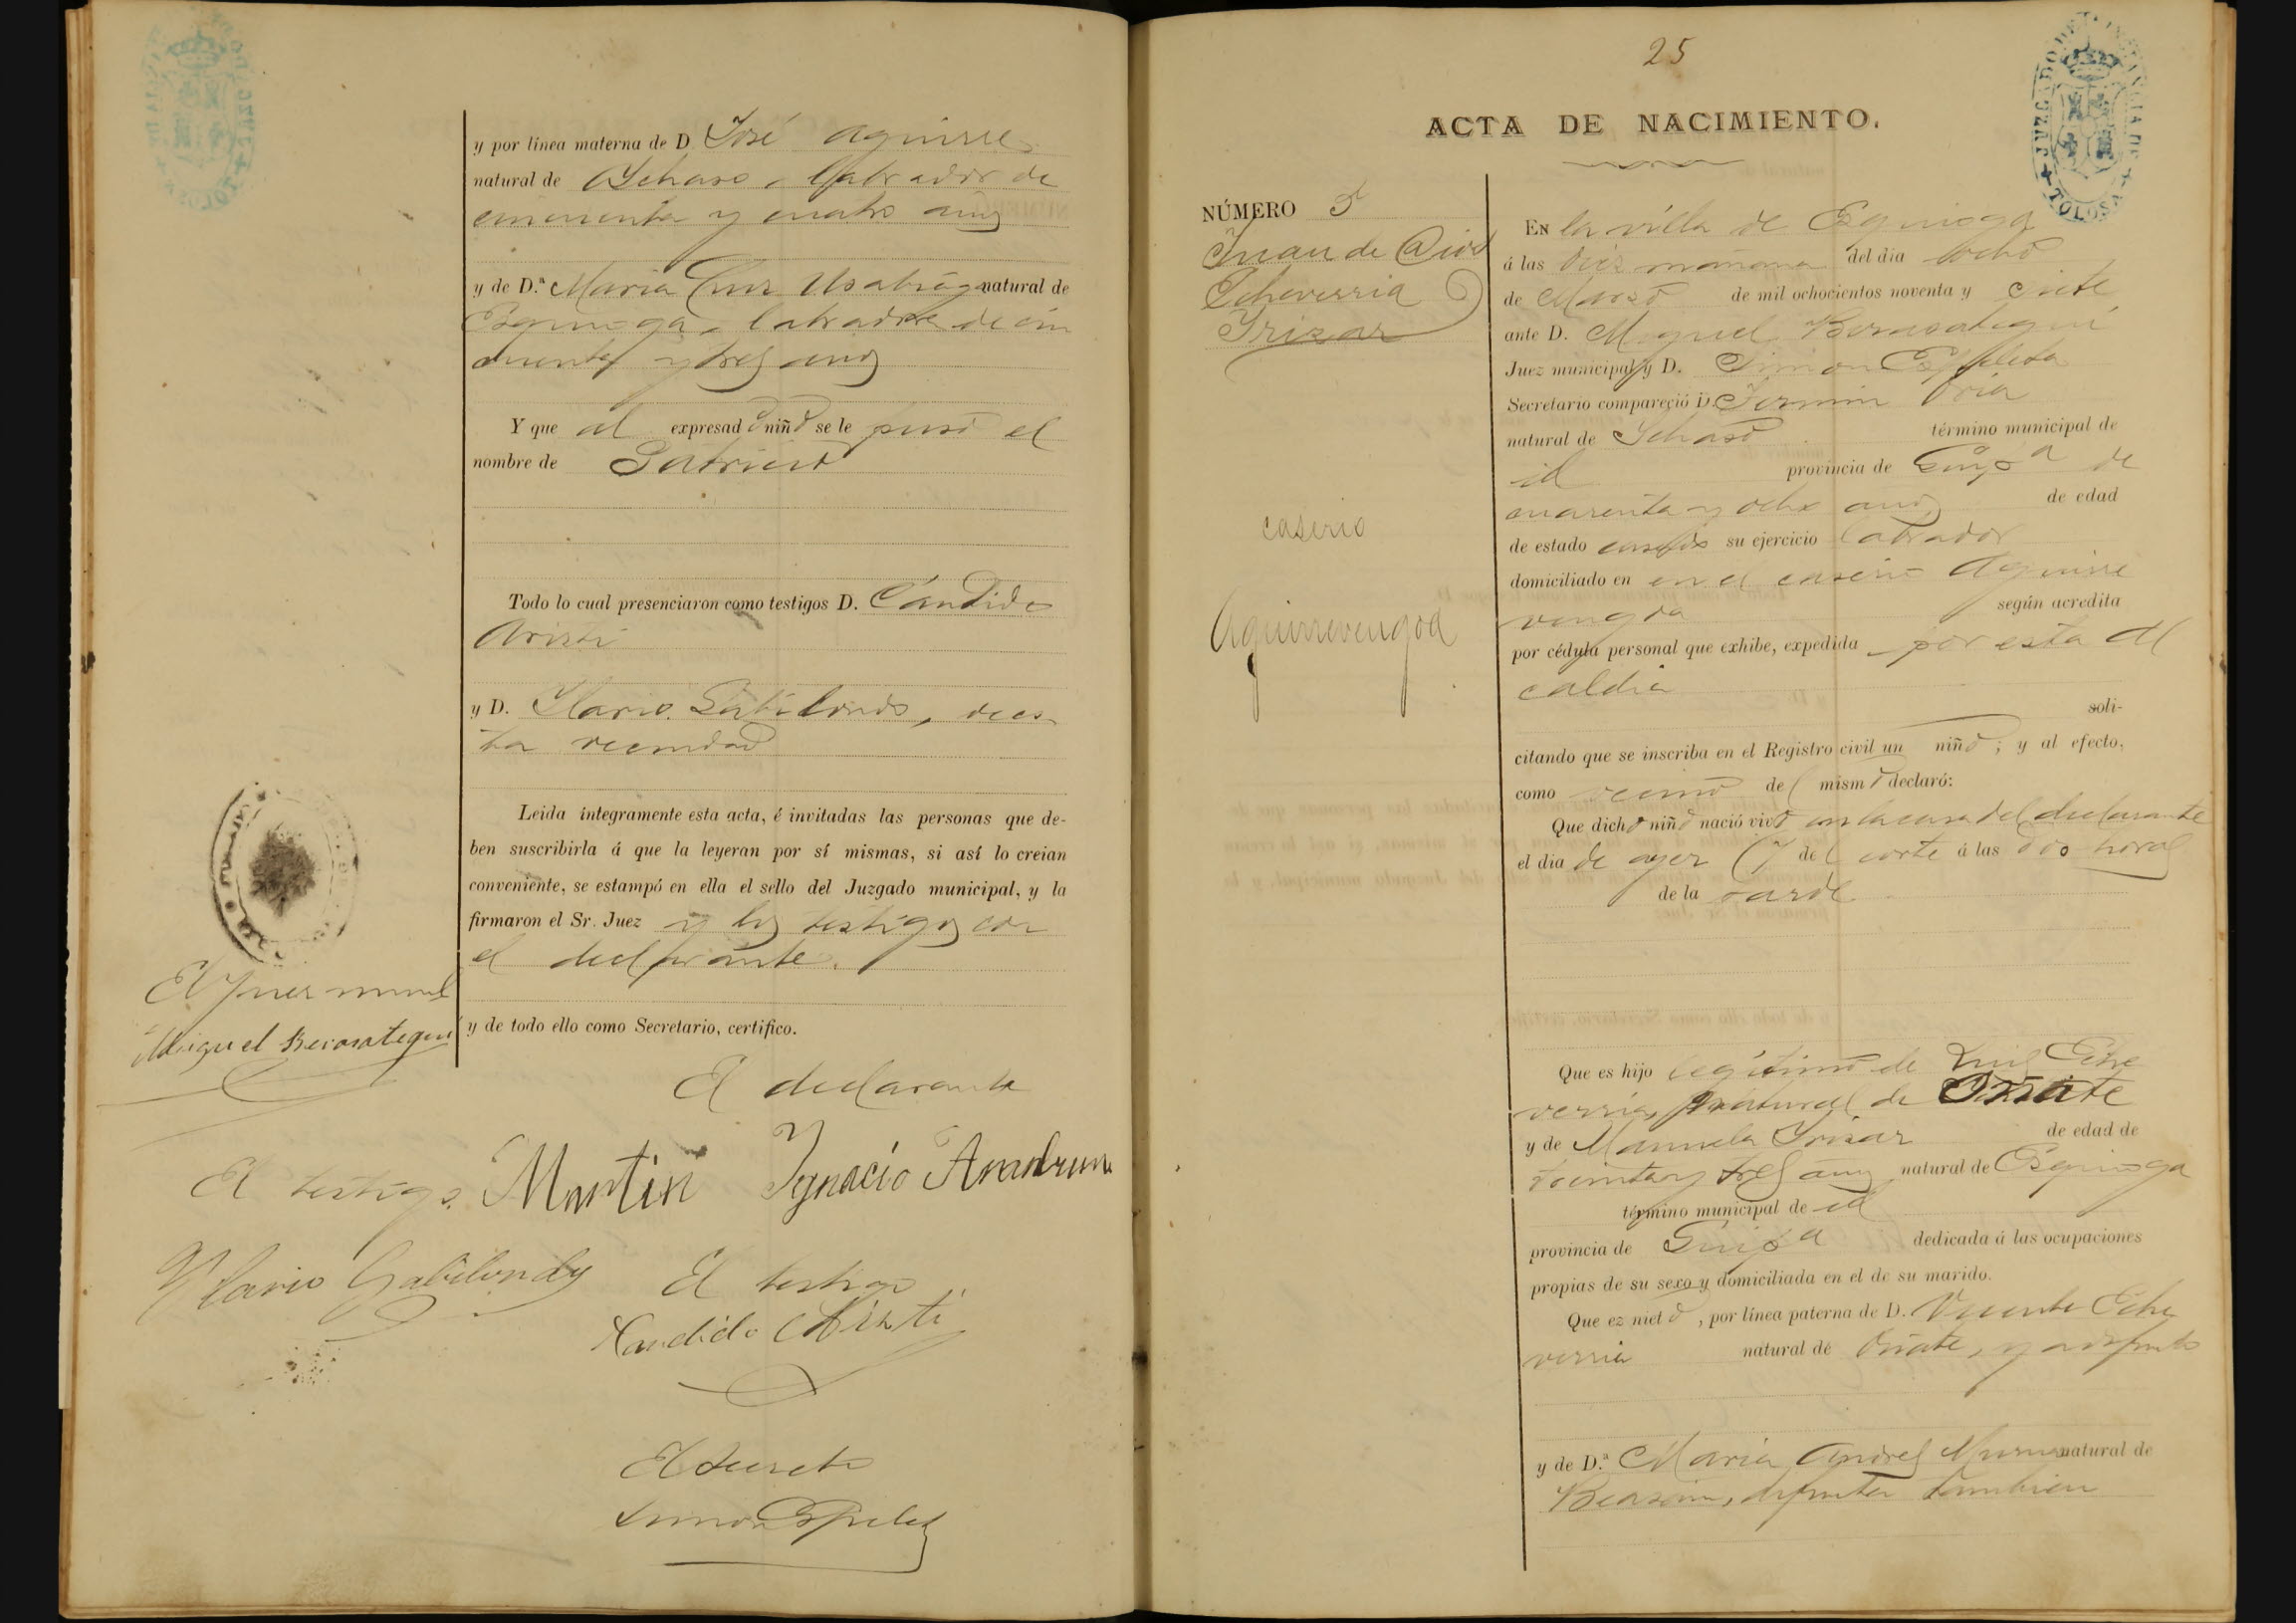 y por línea materna de D. José Aguirre
natural de Ychaso, labrador de
cincuenta y cuatro años
y de D.ª Maria Cruz Usabiaga natural de
Ezquioga, labradora de cin
cuenta y tres años
Y que al expresado niño se le puso el
nombre de Patricio
Todo lo cual presenciaron como testigos D. Cándido
Aristi
y D. Ylario Gabilondo, de es
ta vecindad
Leida íntegramente esta acta, é invitadas las personas que de-
ben suscribirla á que la leyeran por sí mismas, si así lo creian
conveniente, se estampó en ella el sello del Juzgado municipal, y la
firmaron el Sr. Juez y los testigos con
el declarante.
y de todo ello como Secretario, certifico.
El Juez
Miguel Berasategui
El declarante
Martin Ygnacio
El testigo
Ylario Gabilondo
El testigo
Candido Aristi
El Secreto
Simon Ezpeleta
25
ACTA DE NACIMIENTO.
JUZGADO DE INSTANCIA DE TOLOSA
NÚMERO 5
Juan de Dios
Echeverria
Yrizar
caserio
Aguirrevengoa
En la villa de Ezquioga
á las diez mañana del dia ocho
de Marzo de mil ochocientos noventa y siete
ante D. Miguel Berasategui
Juez municipal y D. Simon Ezpeleta
Secretario compareció D. Fermin Oria
natural de Ychaso término municipal de
id provincia de Guipª de
cuarenta y ocho años de edad
de estado casado su ejercicio labrador
domiciliado en en el caserio Aguirre
vengoa según acredita
por cédula personal que exhibe, expedida por esta Al
caldia
soli-
citando que se inscriba en el Registro civil un niño; y al efecto,
como vecino del mismo declaró:
Que dicho niño nació vivo en la casa del declarante
el dia de ayer (7 del corte á las dos horas
de la tarde
Que es hijo legítimo de Luis Eche
verria, natural de Oñate
y de Manuela Yrizar de edad de
treinta y tres años natural de Ezquioga
término municipal de id
provincia de Guipª dedicada á las ocupaciones
propias de su sexo y domiciliada en el de su marido.
Que es nieto, por línea paterna de D. Vicente Eche
verria natural de Oñate, ya difunto
y de D.ª Maria Andres natural de
Beasain, difunta tambien